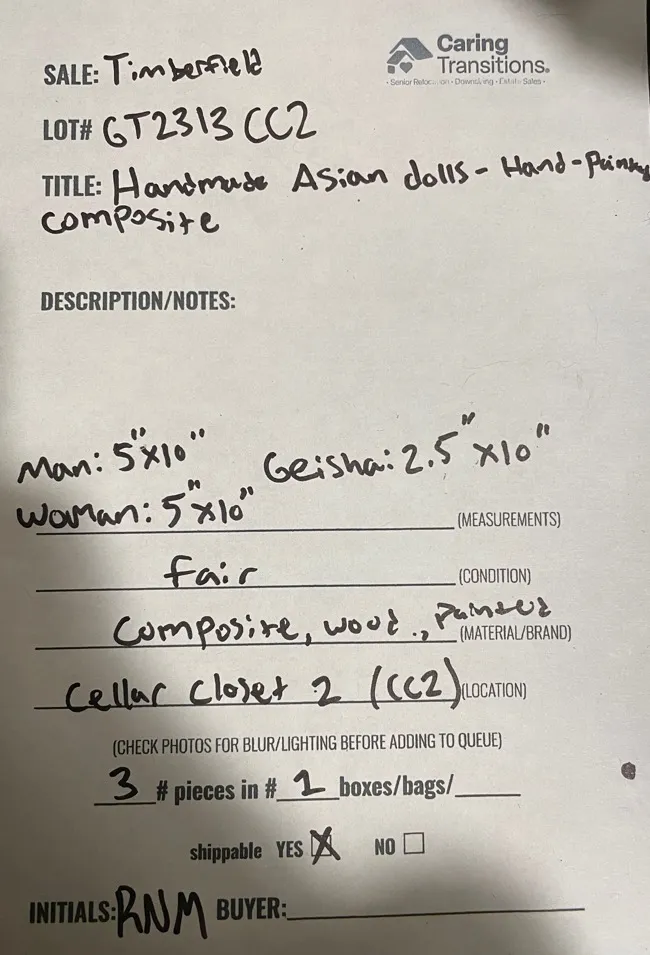 Caring
Transitions.
• Senior Relocation • Downsizing • Estate Sales •
SALE: Timberfield
LOT# GT2313 CC2
TITLE: Handmade Asian dolls - Hand-Painted
composite
DESCRIPTION/NOTES:
Man: 5"x10" Geisha: 2.5"x10"
Woman: 5"x10" (MEASUREMENTS)
fair (CONDITION)
Composite, wood., Painted (MATERIAL/BRAND)
Cellar Closet 2 (CC2) (LOCATION)
(CHECK PHOTOS FOR BLUR/LIGHTING BEFORE ADDING TO QUEUE)
3 # pieces in # 1 boxes/bags/
shippable YES ☒ NO ☐
INITIALS: RNM BUYER: